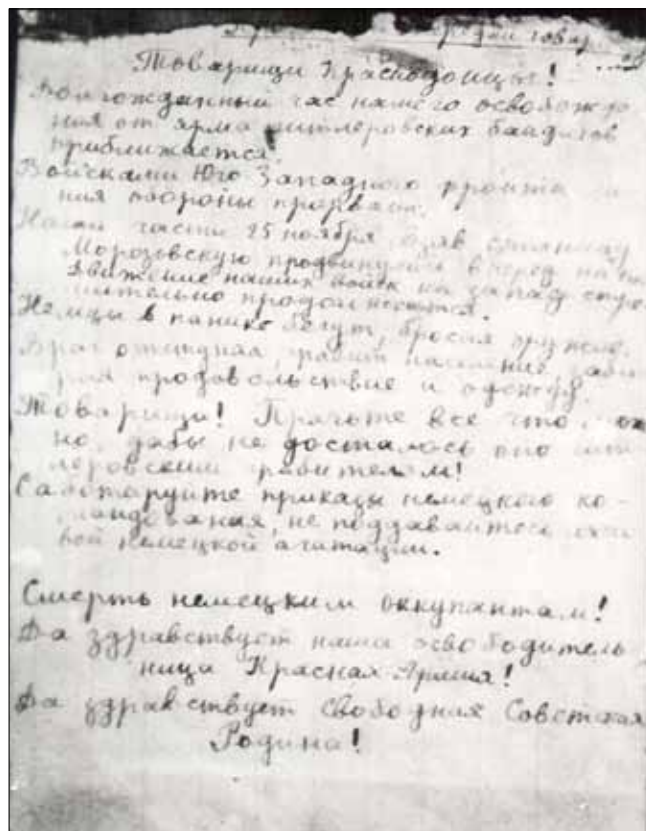 Прочти товар
Товарищи Краснодонцы!
Долгожданный час нашего освобожде
ния от ярма гитлеровских бандитов
приближается.
Войсками Юго Западного фронта ли-
ния обороны прорвана.
Наши части 25 ноября, взяв станицу
Морозовскую продвинулись вперед на
Движение наших войск на запад стре
мительно продолжается.
Немцы в панике бегут, бросая оружие.
Враг отступая, грабит население, заби
рая продовольствие и одежду.
Товарищи! Прячьте все что мож
но, дабы не досталось оно гит
леровским грабителям!
Саботируйте приказы немецкого ко-
мандования, не поддавайтесь лжи
вой немецкой агитации.
Смерть немецким оккупантам!
Да здравствует наша освободитель
ница Красная Армия!
Да здравствует Свободная Советская
Родина!